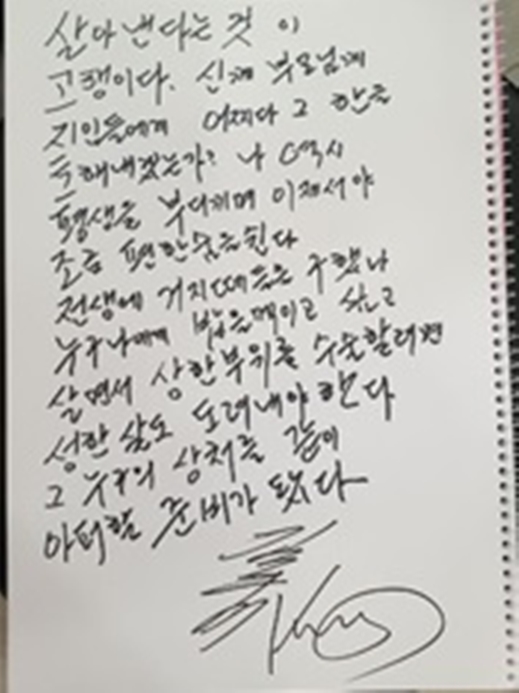 살아낸다는 것이
고행이다. 신께 부모님께
지인들에게 어찌다 그 한을
독해내겠는가? 나 역시
평생을 부대끼며 이제서야
조금 편한숨을쉰다
전생에 거지떼들을 구했나
누구나에게 밥을메이고 싶고
살면서 상한부위를 수술할려면
성한 살도 도려내야 한다
그 누구의 상처를 같이
아퍼할 준비가 됐다